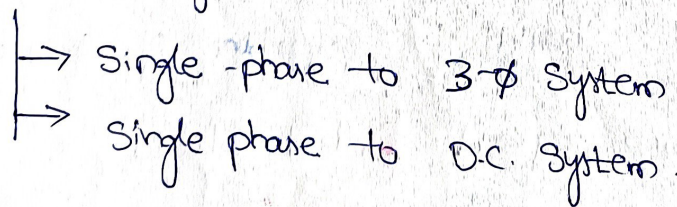 → Single-phase to 3-ϕ System
→ Single phase to D.C. System.